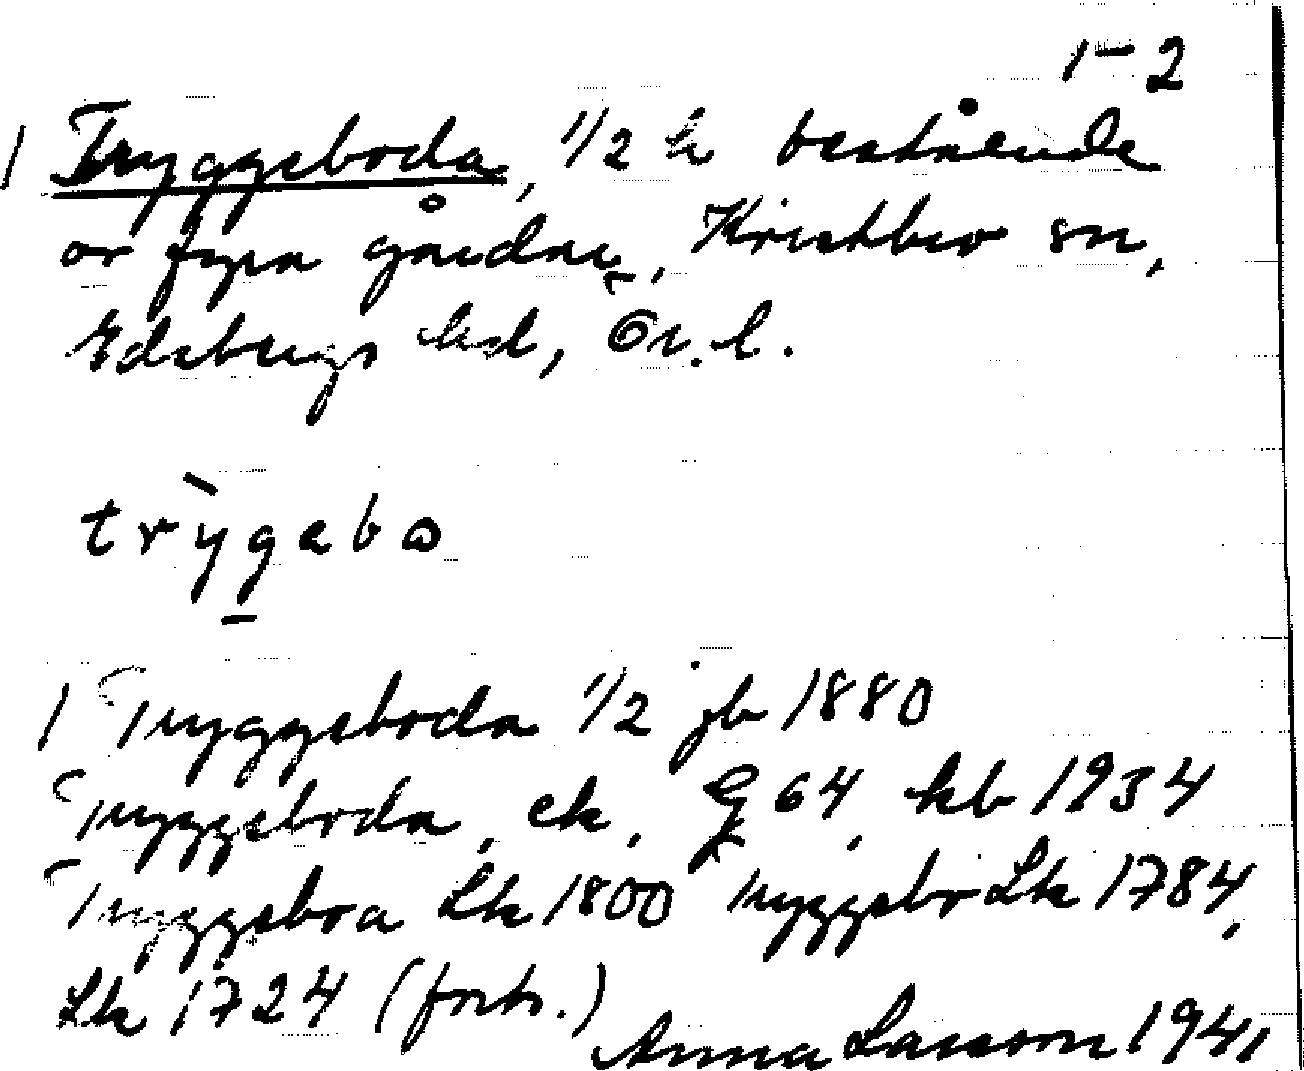 1-2
1 Tryggeboda, 1/2 h bestående
av fyra gårdar, Kvistbro sn,
Edsbergs hd, Ör. l.
trỳgabo
1 Tryggeboda 1/2 jb 1880
Tryggeboda, ek, 64, kb 1934
Tryggeboa Lk 1800 Tryggebo Lk 1784,
Lk 1724 (forts.)
Anna Larsson 1941